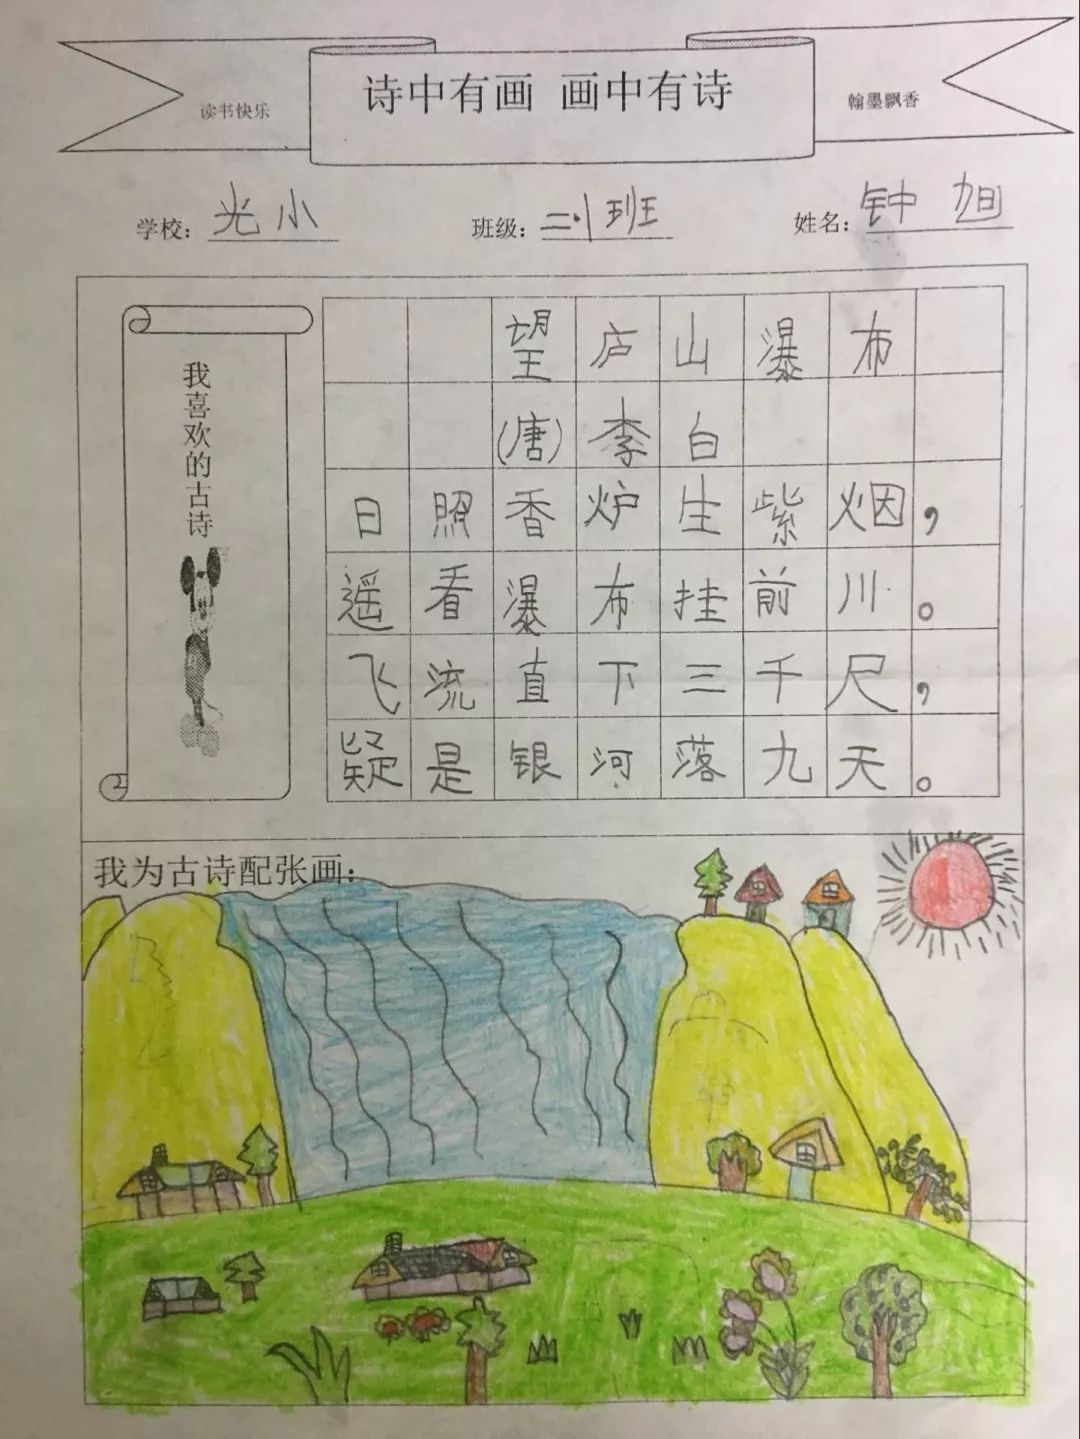 诗中有画 画中有诗
读书快乐
翰墨飘香
学校：光小 班级：二.1班 姓名：钟旭
我喜欢的古诗
望庐山瀑布
(唐)李白
日照香炉生紫烟，
遥看瀑布挂前川。
飞流直下三千尺，
疑是银河落九天。
我为古诗配张画：